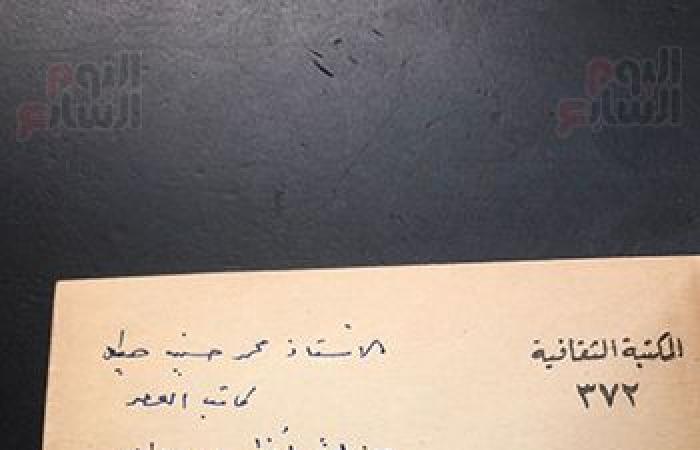 اليوم السابع
اليوم السابع
المكتبة الثقافية
٣٧٢
الأستاذ محمد حسنين هيكل
كاتب العصر